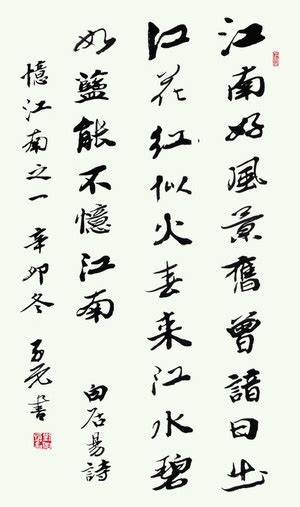 江南好風景舊曾諳日出
江花紅似火春来江水碧
如藍能不憶江南 白居易詩
憶江南之一 辛卯冬 書